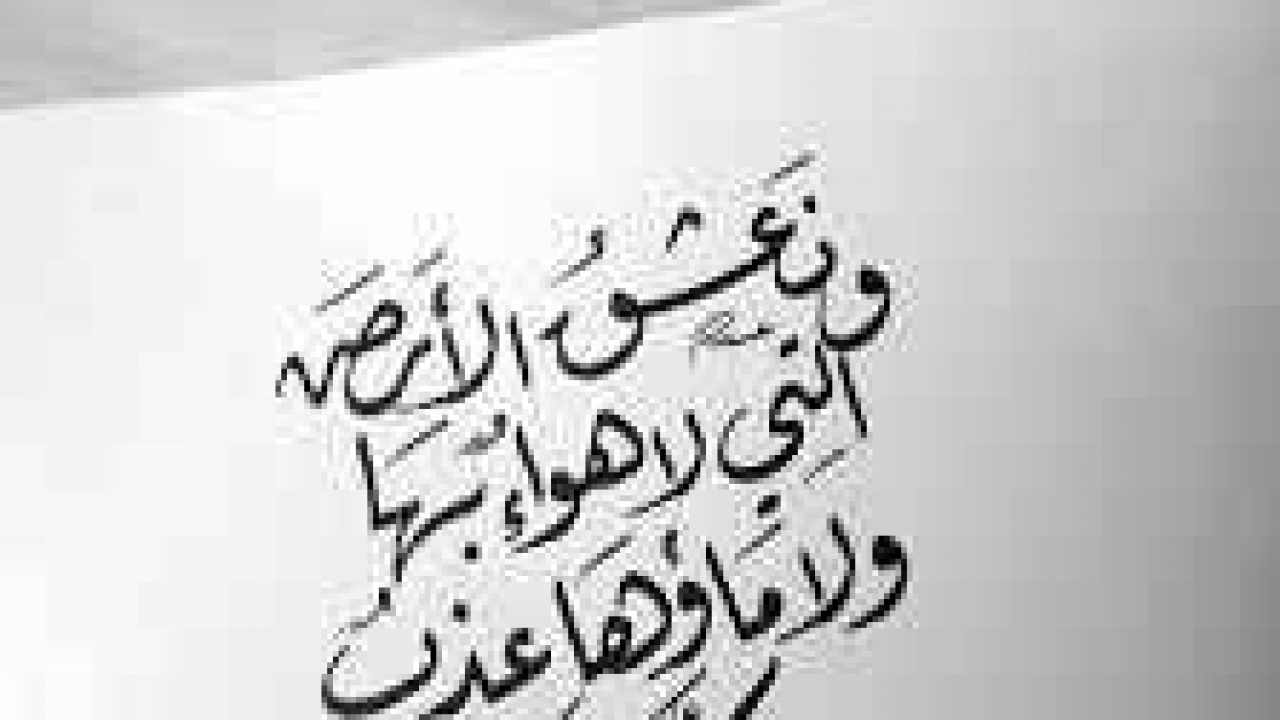 ونَعشقُ الأَرضَ
التي لا هواءٌ بِهَا
ولا مَاؤهَا عذبٌ